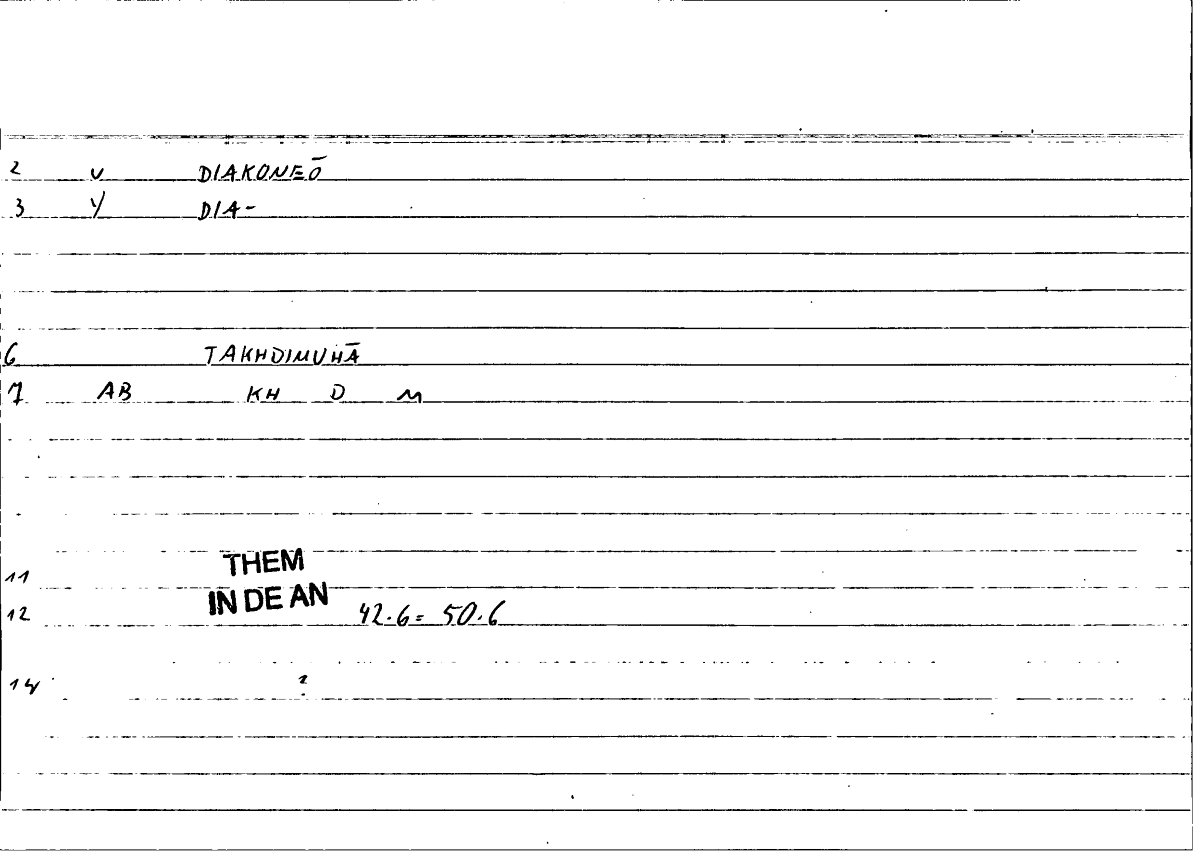 2 V DIAKONEŌ
3 Y DIA-
6 TAKHDIMUHĀ
7 AB KH D M
THEM
11
IN DE AN
12 42.6= 50.6
14 ?